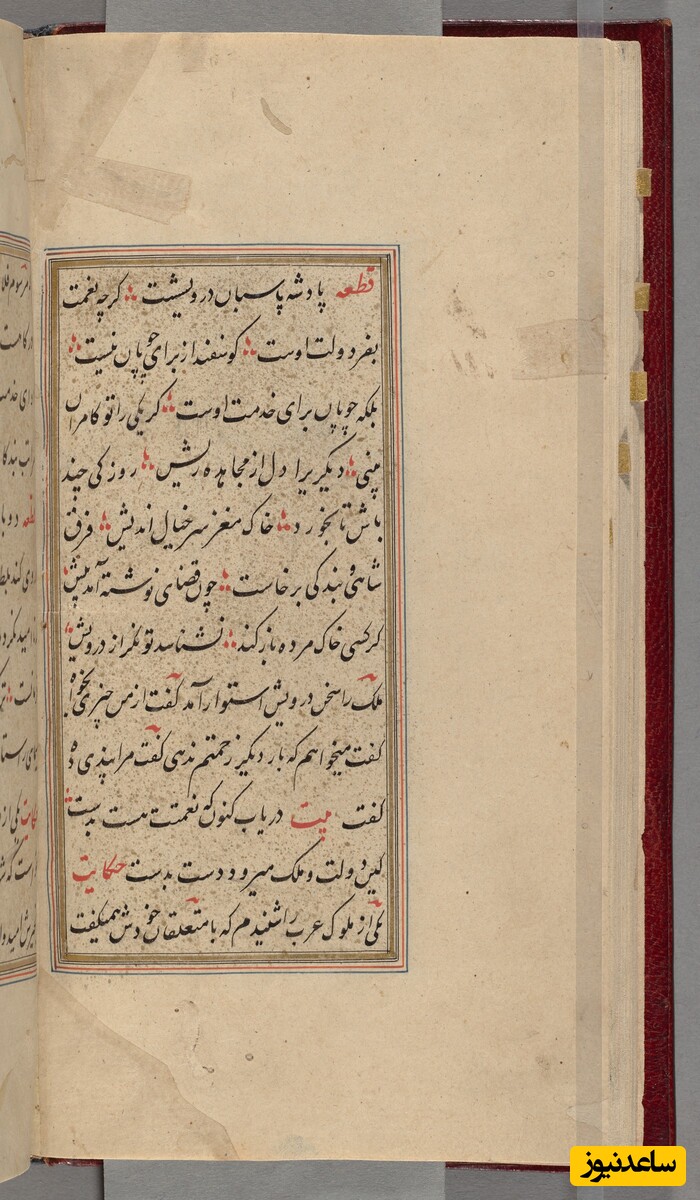 قطعه پادشه پاسبان درویشست گرچه نعمت
بفر دولت اوست گوسفند از برای چوپان نیست
بلکه چوپان برای خدمت اوست گر یکی را تو کامران
بینی دیگریرا دل از مجاهده ریش روزکی چند
باش تا بخورد خاک مغز سر خیال اندیش فرق
شاهی و بندگی برخاست چون قضای نوشته آمد پیش
گر کسی خاک مرده باز کند نشناسد توانگر از درویش
ملک را سخن درویش استوار آمد گفت از من چیزی بخواه
گفت میخواهم که بار دیگر زحمتم ندهی گفت مرا پندی ده
گفت بیت دریاب کنون که نعمتت هست بدست
کین دولت و ملک میرود دست بدست حکایت
یکی از ملوک عرب را شنیدم که با متعلقان خودش همیگفت
ساعدنیوز